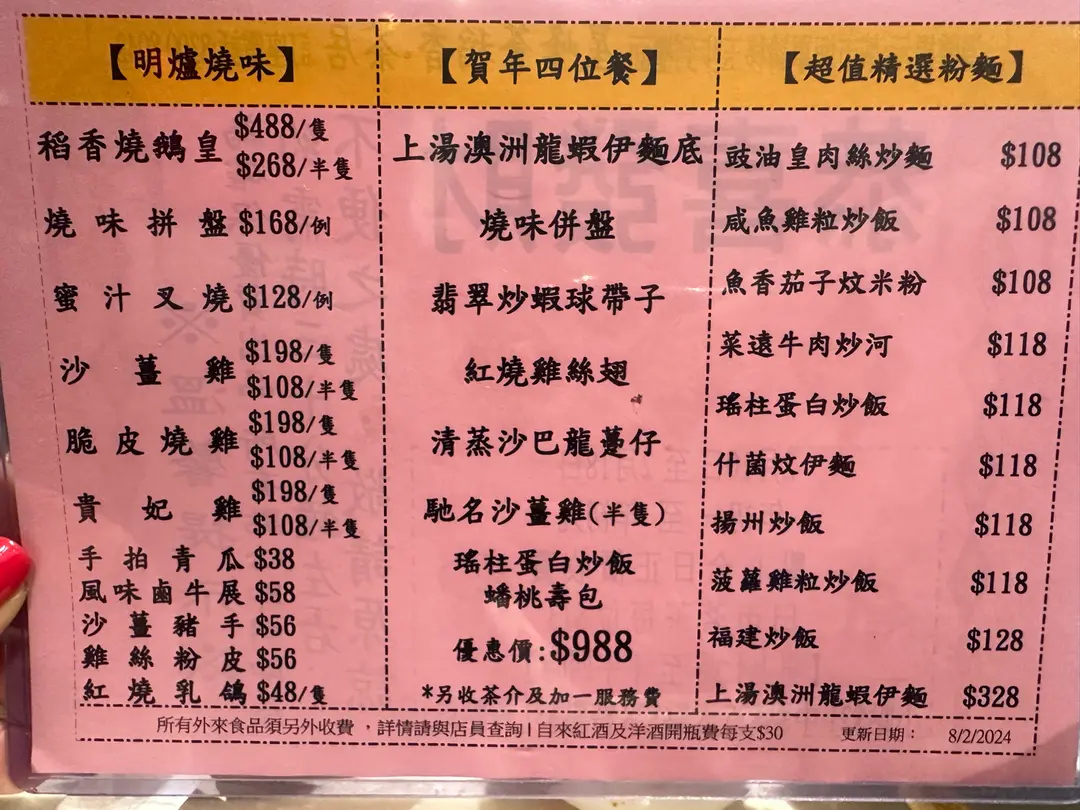 【明爐燒味】
稻香燒鵝皇 $488/隻
$268/半隻
燒味拼盤 $168/例
蜜汁叉燒 $128/例
沙薑雞 $198/隻
$108/半隻
脆皮燒雞 $198/隻
$108/半隻
貴妃雞 $198/隻
$108/半隻
手拍青瓜 $38
風味鹵牛展 $58
沙薑豬手 $56
雞絲粉皮 $56
紅燒乳鴿 $48/隻
【賀年四位餐】
上湯澳洲龍蝦伊麵底
燒味併盤
翡翠炒蝦球帶子
紅燒雞絲翅
清蒸沙巴龍躉仔
馳名沙薑雞(半隻)
瑤柱蛋白炒飯
蟠桃壽包
優惠價:$988
*另收茶介及加一服務費
【超值精選粉麵】
豉油皇肉絲炒麵 $108
咸魚雞粒炒飯 $108
魚香茄子炆米粉 $108
菜遠牛肉炒河 $118
瑤柱蛋白炒飯 $118
什菌炆伊麵 $118
揚州炒飯 $118
菠蘿雞粒炒飯 $118
福建炒飯 $128
上湯澳洲龍蝦伊麵 $328
所有外來食品須另外收費，詳情請與店員查詢 | 自來紅酒及洋酒開瓶費每支$30 更新日期： 8/2/2024